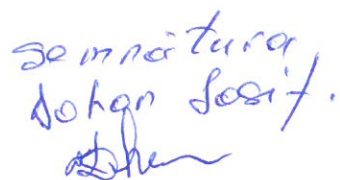 Semnătura
Dohan Iosif.